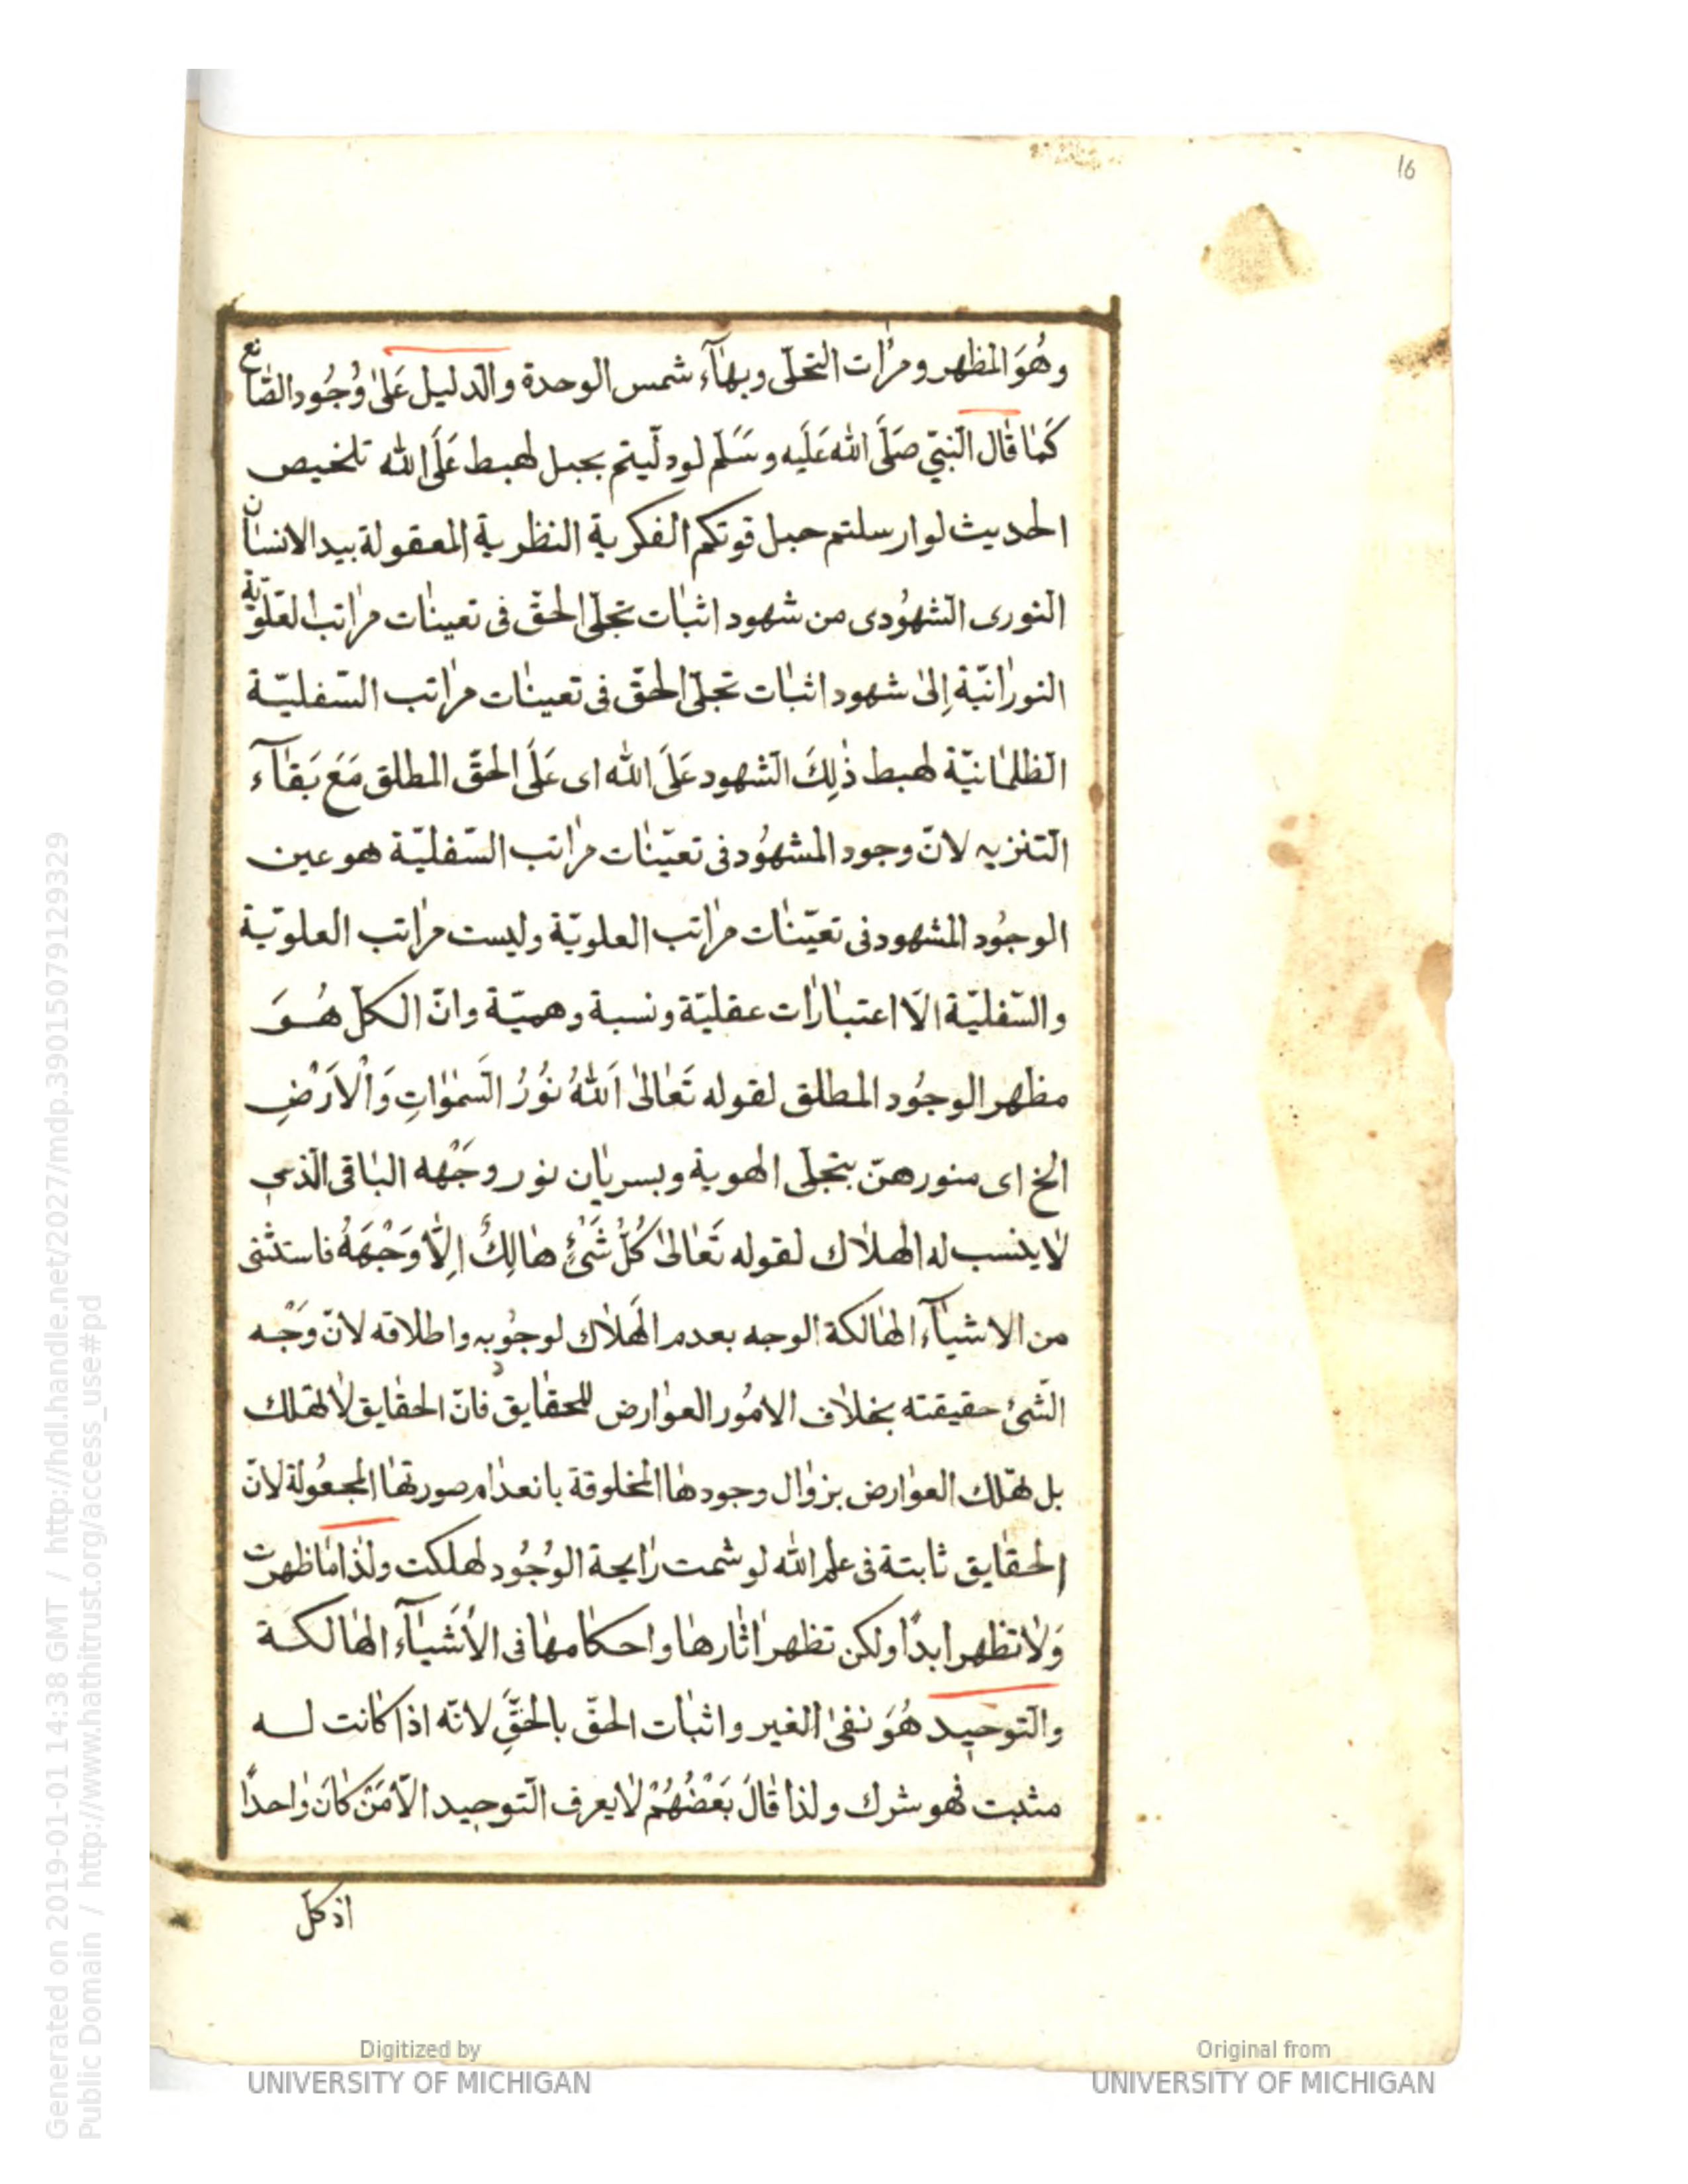 16
وهُوَ المظهر ومرٰات التجلّى وبهآء شمس الوحدة والدليل عَلىٰ وُجُود الصّانع
كَمٰا قٰال النّبىّ صَلَّى الله عَلَيه وسَلم لو دلّيتم بحبل لهبط عَلَى الله تلخيص
الحديث لو ارسلتم حبل قوتكم الفكرية النظرية المعقولة بيد الانسٰان
النورى الشهُودى من شهود اثبٰات تجلّى الحقّ فى تعينٰات مرٰاتب العلويّة
النورٰانيّة إلىٰ شهود اثبٰات تجلّى الحقّ فى تعينٰات مرٰاتب السّفليّة
الظلمٰانيّة لهبط ذٰلِكَ الشهود عَلَى الله اى عَلَى الحقّ المطلق مَعَ بَقٰآء
التنزيه لانّ وجود المشهُود فى تعيّنٰات مرٰاتب السّفليّة هو عين
الوجُود المشهود فى تعيّنٰات مرٰاتب العلويّة وليست مرٰاتب العلويّة
والسّفليّة الّا اعتبٰارٰات عقليّة ونسبة وهميّة وانّ الكلّ هُوَ
مظهر الوجُود المطلق لقوله تَعٰالىٰ اَللهُ نُوْرُ السَّمٰوٰاتِ وَاْلاَرْضِ
الخ اى منورهنّ بتجلّى الهوية وبسريٰان نور وجَهْه البٰاقى الّذى
لٰا ينسب له الهلٰاك لقوله تَعٰالىٰ كُلُّ شَىْءٍ هٰالِكٌ اِلّٰا وَجْهَهُ فاستثنى
من الاشيٰآء الهٰالكة الوجه بعدم الهَلٰاك لوجُوبه واطلاقه لانّ وَجْه
الشّئ حقيقته بخلٰاف الامُور العوٰارض للحقٰايق فانّ الحقٰايق لٰا تهلك
بل تهلك العوٰارض بزوٰال وجودهٰا المخلوقة بانعدٰام صورتهٰا المجعُولة لانّ
الحقٰايق ثابتة فى علم الله لو شمت رٰايحة الوُجُود لهلكت ولذٰا مٰا ظهرت
وَلٰا تظهر ابدًا ولكن تظهر اثٰارهٰا واحكٰامهٰا فى الأشيٰآء الهٰالكة
والتوحيد هُوَ نفىٰ الغير واثبٰات الحقّ بالحَقِّ لانّه اذا كٰانت له
مثبت فهو شرك ولذا قٰالَ بَعْضُهُمْ لٰا يعرف التّوحيد الّا مَنْ كٰانَ وٰاحدًا
اذ كلّ
Digitized by
UNIVERSITY OF MICHIGAN
Original from
UNIVERSITY OF MICHIGAN
Generated on 2019-01-01 14:38 GMT / http://hdl.handle.net/2027/mdp.39015079129329
Public Domain / http://www.hathitrust.org/access_use#pd